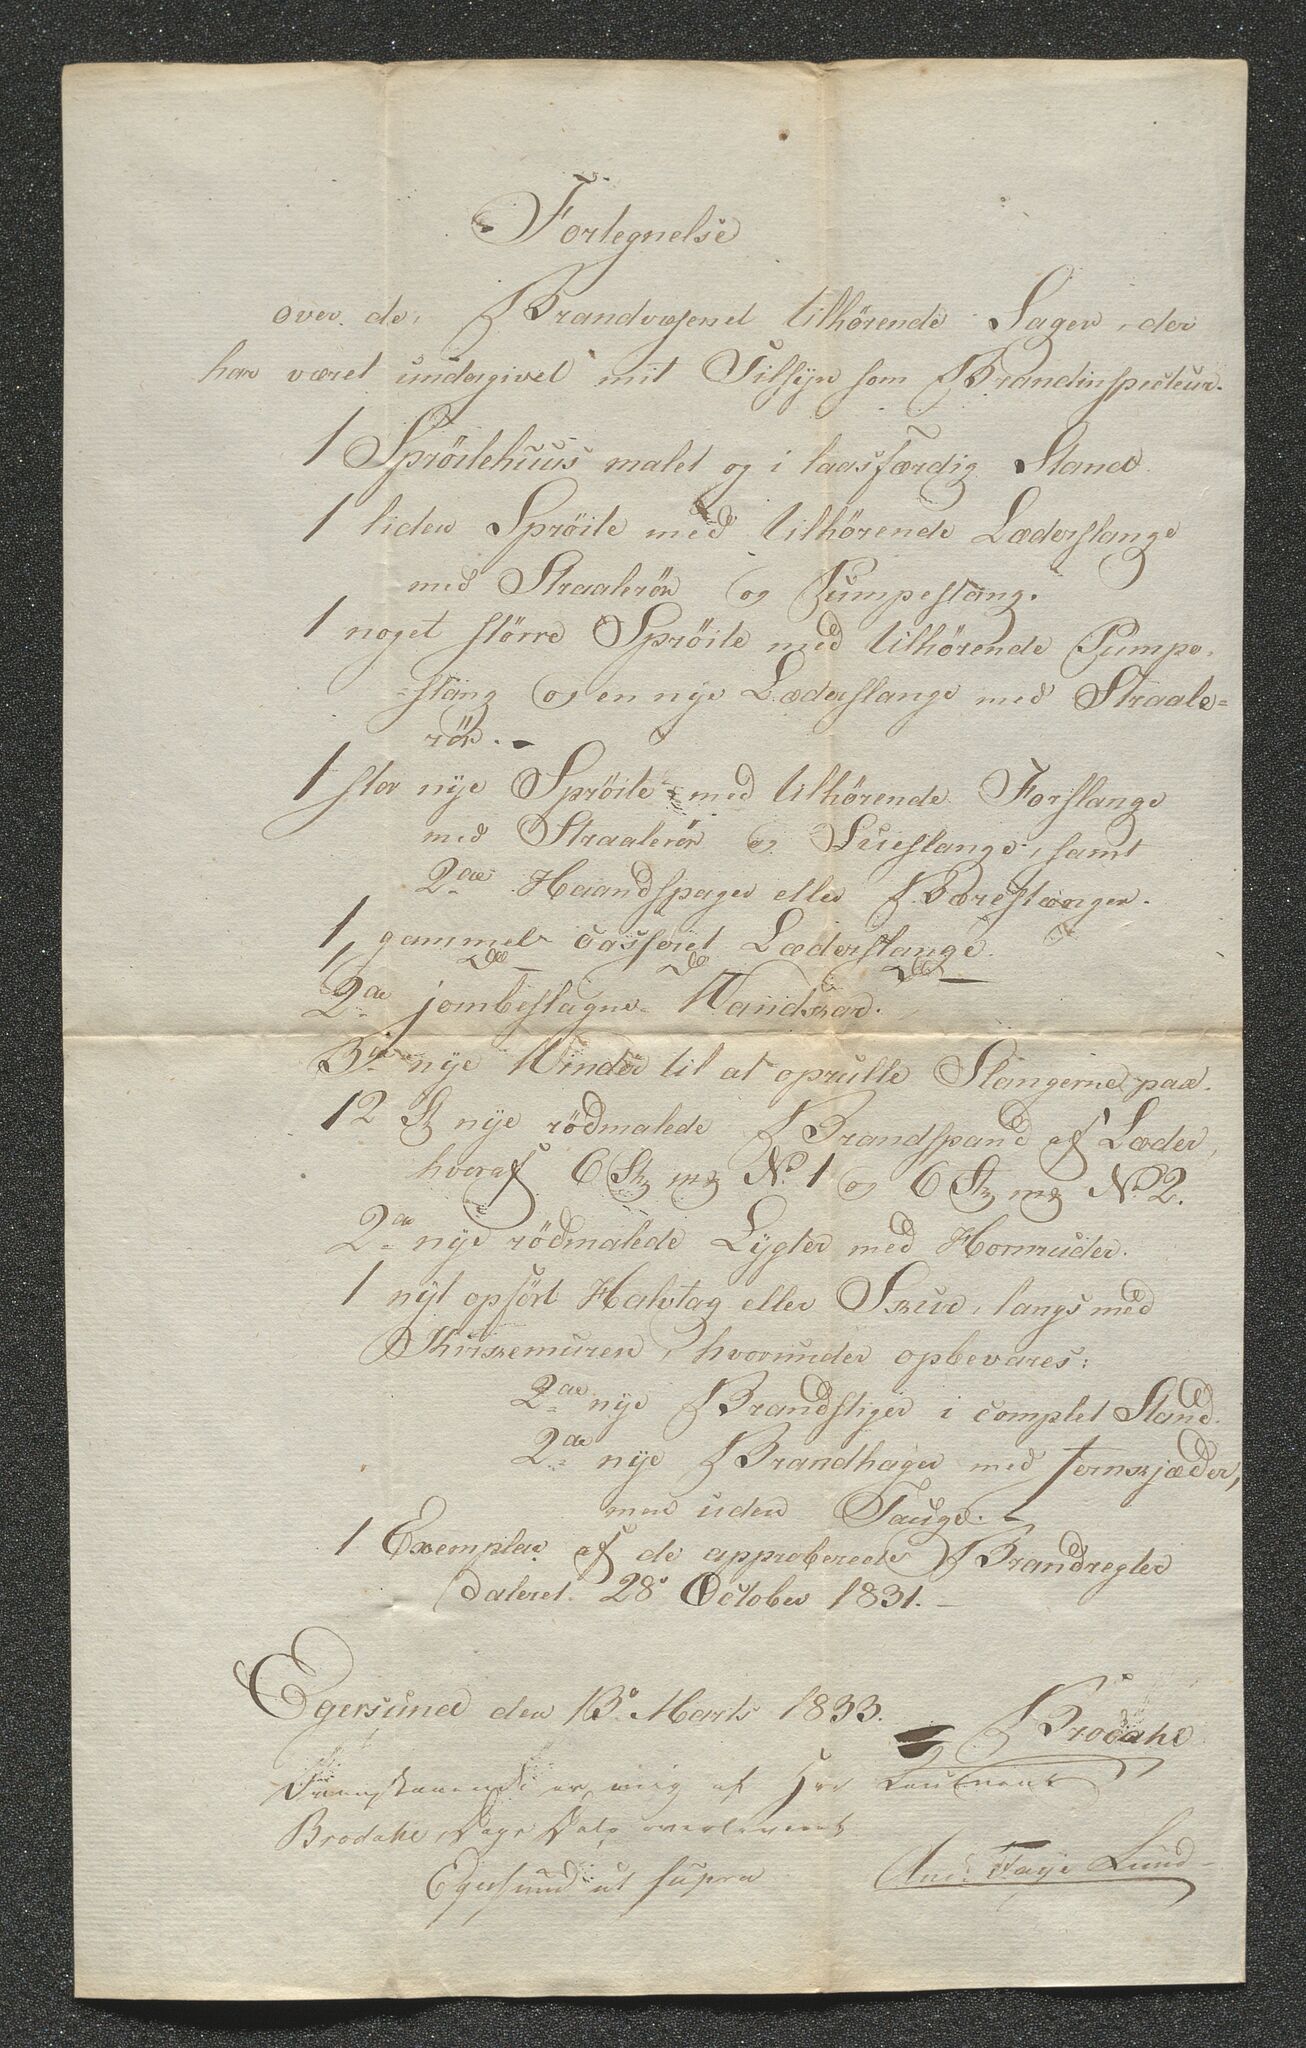 Fortegnelse
over de, Brandvæsenet tilhørende Sager, der
har været undergivet mit Tilsÿn som Brandinspecteur.
1 Spröitehuus malet og i laasfærdig Stand
1 liden Spröite med tilhørende Læderslange
med Straalerör og Pumpestang.
1 noget större Spröite med tilhørende Pumpe-
stang og en nye Læderslange med Straale=
rör.
1 stor nÿe Spröite med tilhørende Forslange
med Straalerör og Sueslange, samt
2de Haandspager eller Bærestænger.
1 gammel casseret Læderslange.
2de jernbeslagne Vandkar.
3de nÿe Vinder til at oprulle Slangerne paa.
12 St nÿe rödmalede Brandspand af Læder,
hvoraf 6 St mz No 1 og 6 St mz No 2.
2de nÿe rödmalede Lÿgter med Hornruder.
1 nÿt opfört Halvtag eller Skur, langs med
Kirkemuren, hvorunder opbevares:
2de nÿe Brandstiger i complet Stand.
2de nÿe Brandhager med Jernkjæder,
men uden Touge.
1 Exemplar af de approberede Brandregler
dateret 28de October 1831.
Egersund den 13de Marts 1833.
Brodahl
er mig af Hr Leutnent
Brodahl Dags Dato overleveret
Egersund ut supra
And. Faÿe Lund